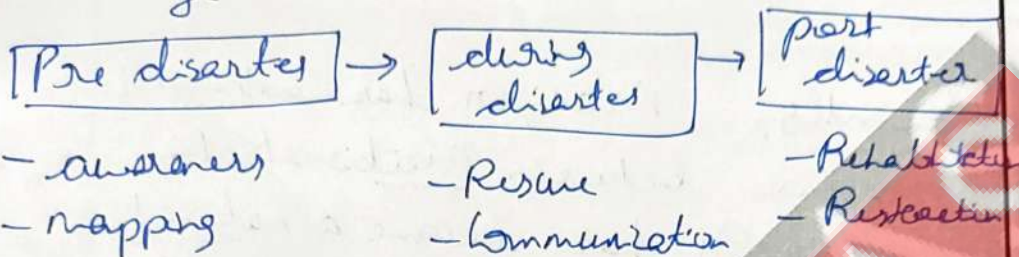 Pre disaster → during disaster → post disaster
- awareness
- mapping
- Rescue
- Communization
- Rehabilitation